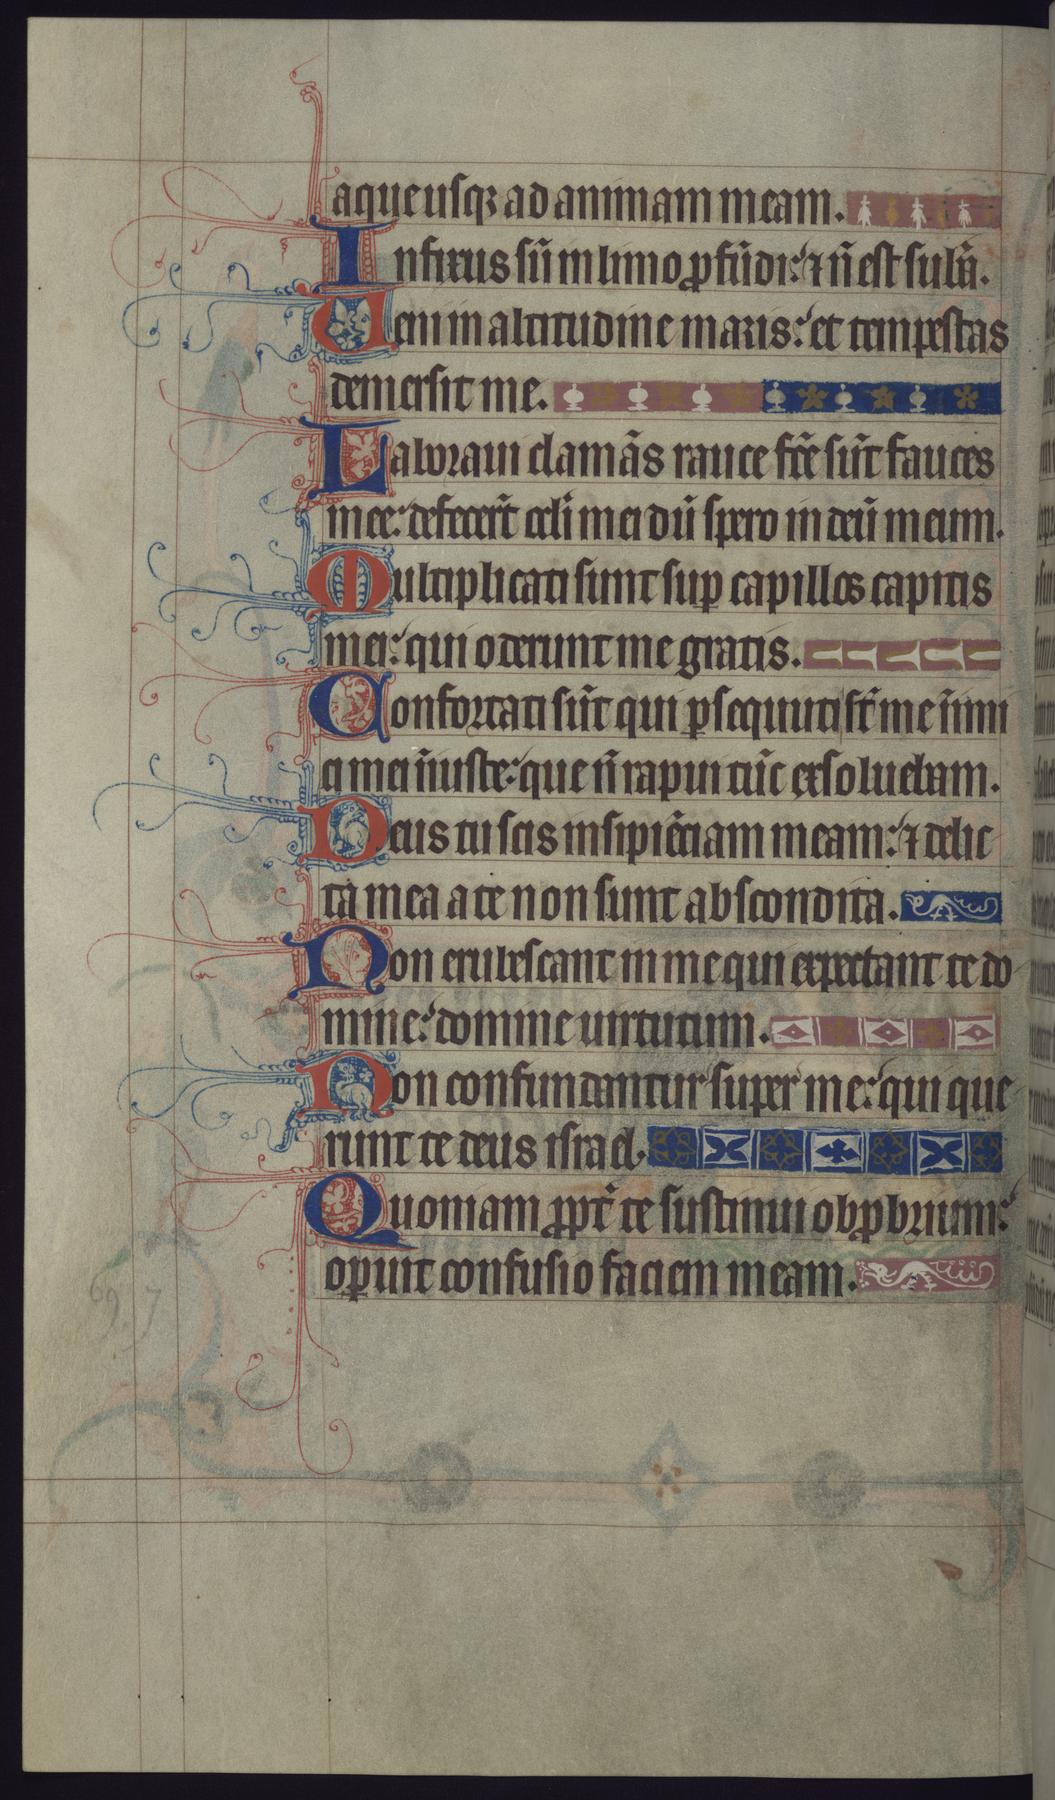 aque usqꝫ ad animam meam.
Infixus sū in limo ꝓfūdi: ⁊ n̄ est sub̄a.
Ueni in altitudine maris: et tempestas
demersit me.
Laboraui clamās rauce fc̄e sūt fauces
mee: defecer̄t ocl̄i mei dū spero in deū meum.
Multiplicati sunt suꝑ capillos capitis
mei: qui oderunt me gratis.
Confortati sūt qui ꝑsequuti st̄ me inimi
ci mei iniuste: que n̄ rapui tūc exsoluebam.
Deus tu scis insipiēciam meam: ⁊ delic
ta mea a te non sunt abscondita.
Non erubescant in me qui expectant te do
mine: domine uirtutum.
Non confundantur super me: qui que
runt te deus israel.
Quoniam ꝓpt̄ te sustinui obꝓbrium:
oꝑuit confusio faciem meam.
69. 7